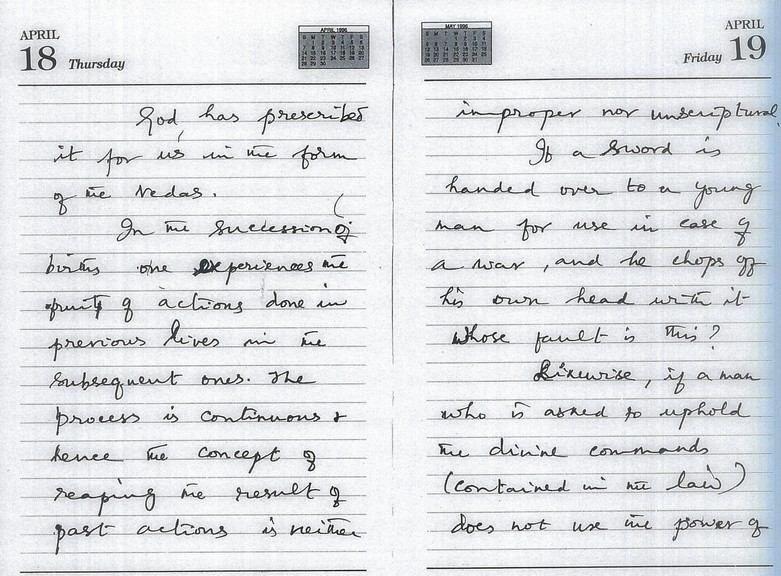 APRIL
18 Thursday
APRIL 1996
God, has prescribed
it for us in the form
of the Vedas.
In the succession of
births one experiences the
fruits of actions done in
previous lives in the
subsequent ones. The
process is continuous &
hence the concept of
reaping the result of
past actions is neither
MAY 1996
APRIL
Friday 19
improper nor unscriptural.
If a sword is
handed over to a young
man for use in case of
a war, and he chops off
his own head with it
whose fault is this?
Likewise, if a man
who is asked to uphold
the divine commands
(contained in the law)
does not use the power of